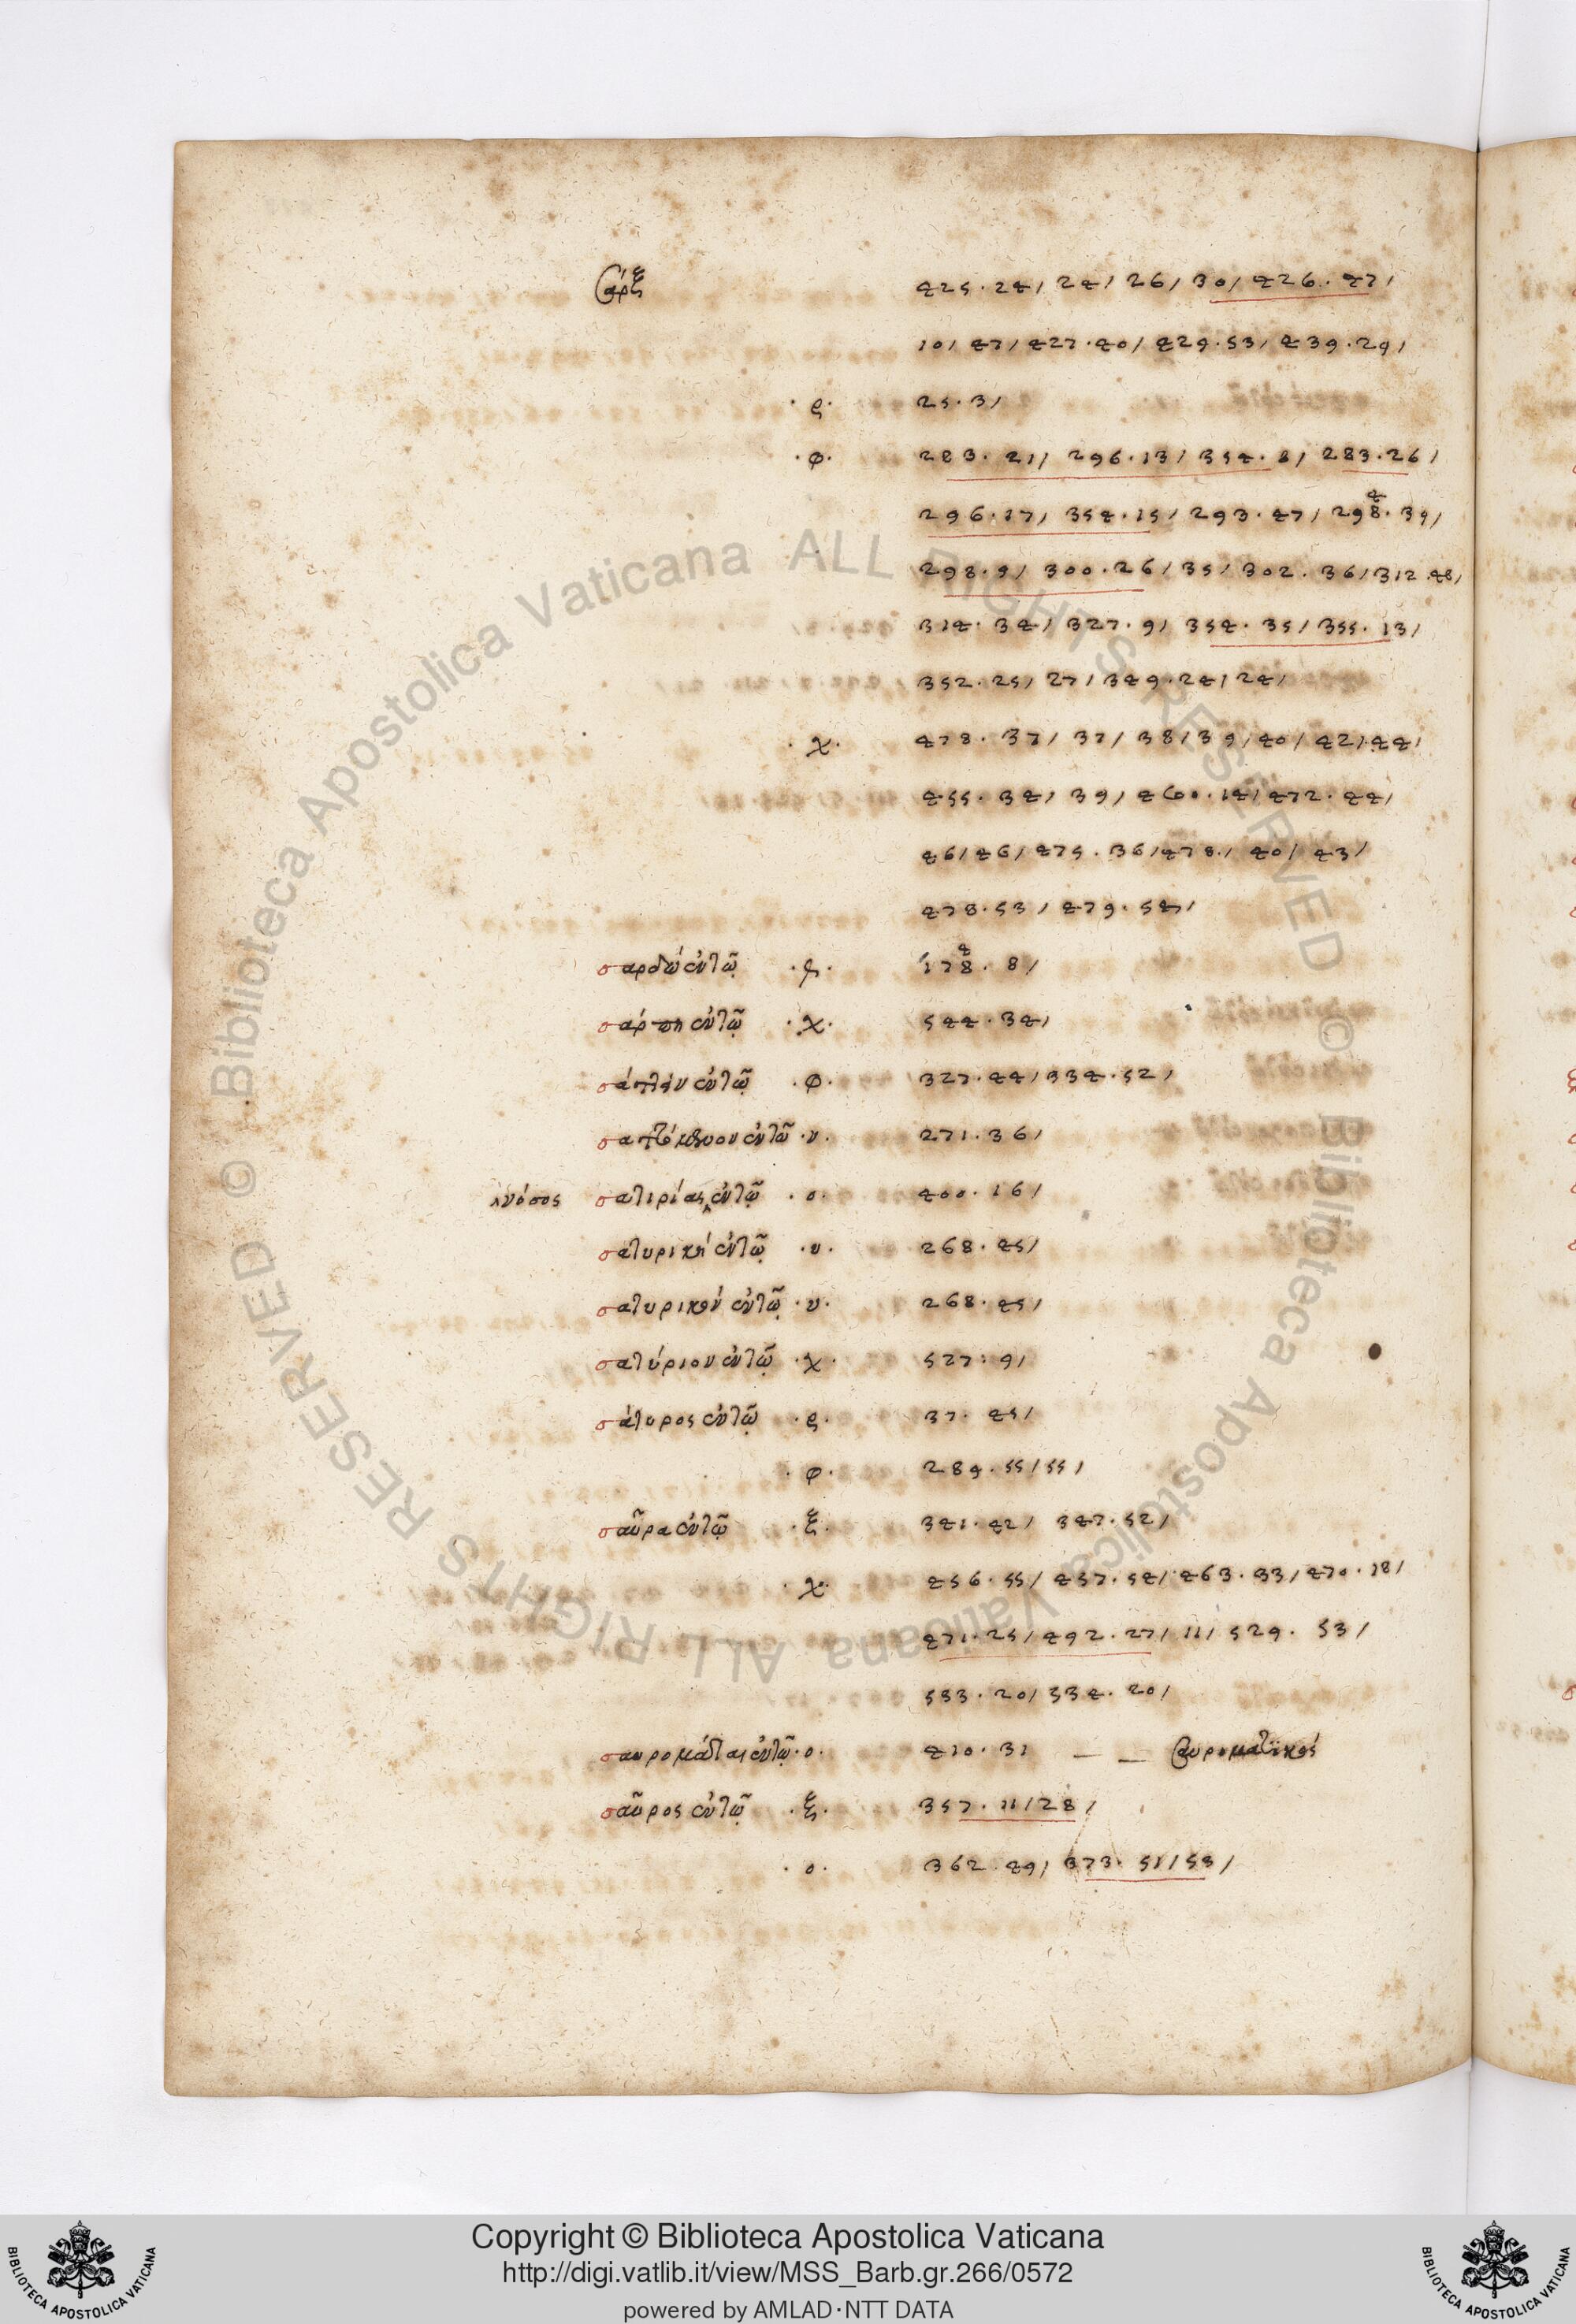 Σάρξ 425.24/ 24/ 26/ 30/ 426.47/
10/ 47/ 427.40/ 429.53/ 439.29/
.ε. 25.3/
.φ. 283.21/ 296.13/ 354.8/ 283.26/
296.17/ 354.15/ 293.47/ 298.39/
298.9/ 300.26/ 35/ 302.36/ 312.48/
314.34/ 327.9/ 354.35/ 355.13/
352.25/ 27/ 349.24/ 24/
.χ. 478.37/ 37/ 38/ 39/ 40/ 42/ 44/
455.34/ 39/ 460.14/ 472.44/
46/ 46/ 475.36/ 478./ 40/ 43/
478.53/ 479.54/
σαρδώ ἐν τῶ .ς. 178.8/
σάρπη ἐν τῶ .χ. 544.34/
ἐν τῶ .φ. 327.44/ 334.52/
ἐν τῶ .υ. 271.36/
ἡ νόσος σατιρίας ἐν τῶ .ο. 400.16/
σατυρική ἐν τῶ .υ. 268.45/
σατυρικόν ἐν τῶ .υ. 268.45/
σατύριον ἐν τῶ .χ. 527.9/
σάτυρος ἐν τῶ .ε. 37.45/
.φ. 289.55/ 55/
σαῦρα ἐν τῶ .ξ. 341.42/ 347.52/
.χ. 456.55/ 457.54/ 463.33/ 470.18/
471.25/ 492.27/ 11/ 529.53/
533.20/ 534.20/
σαυρομάται ἐν τῶ .ο. 410.31 — — Σαυροματικός
σαῦρος ἐν τῶ .ξ. 357.11/ 28/
.ο. 362.49/ 373.51/ 53/
© Biblioteca Apostolica Vaticana ALL RIGHTS RESERVED
© Biblioteca Apostolica Vaticana ALL RIGHTS RESERVED
Copyright © Biblioteca Apostolica Vaticana
http://digi.vatlib.it/view/MSS_Barb.gr.266/0572
powered by AMLAD·NTT DATA
BIBLIOTECA APOSTOLICA VATICANA
BIBLIOTECA APOSTOLICA VATICANA